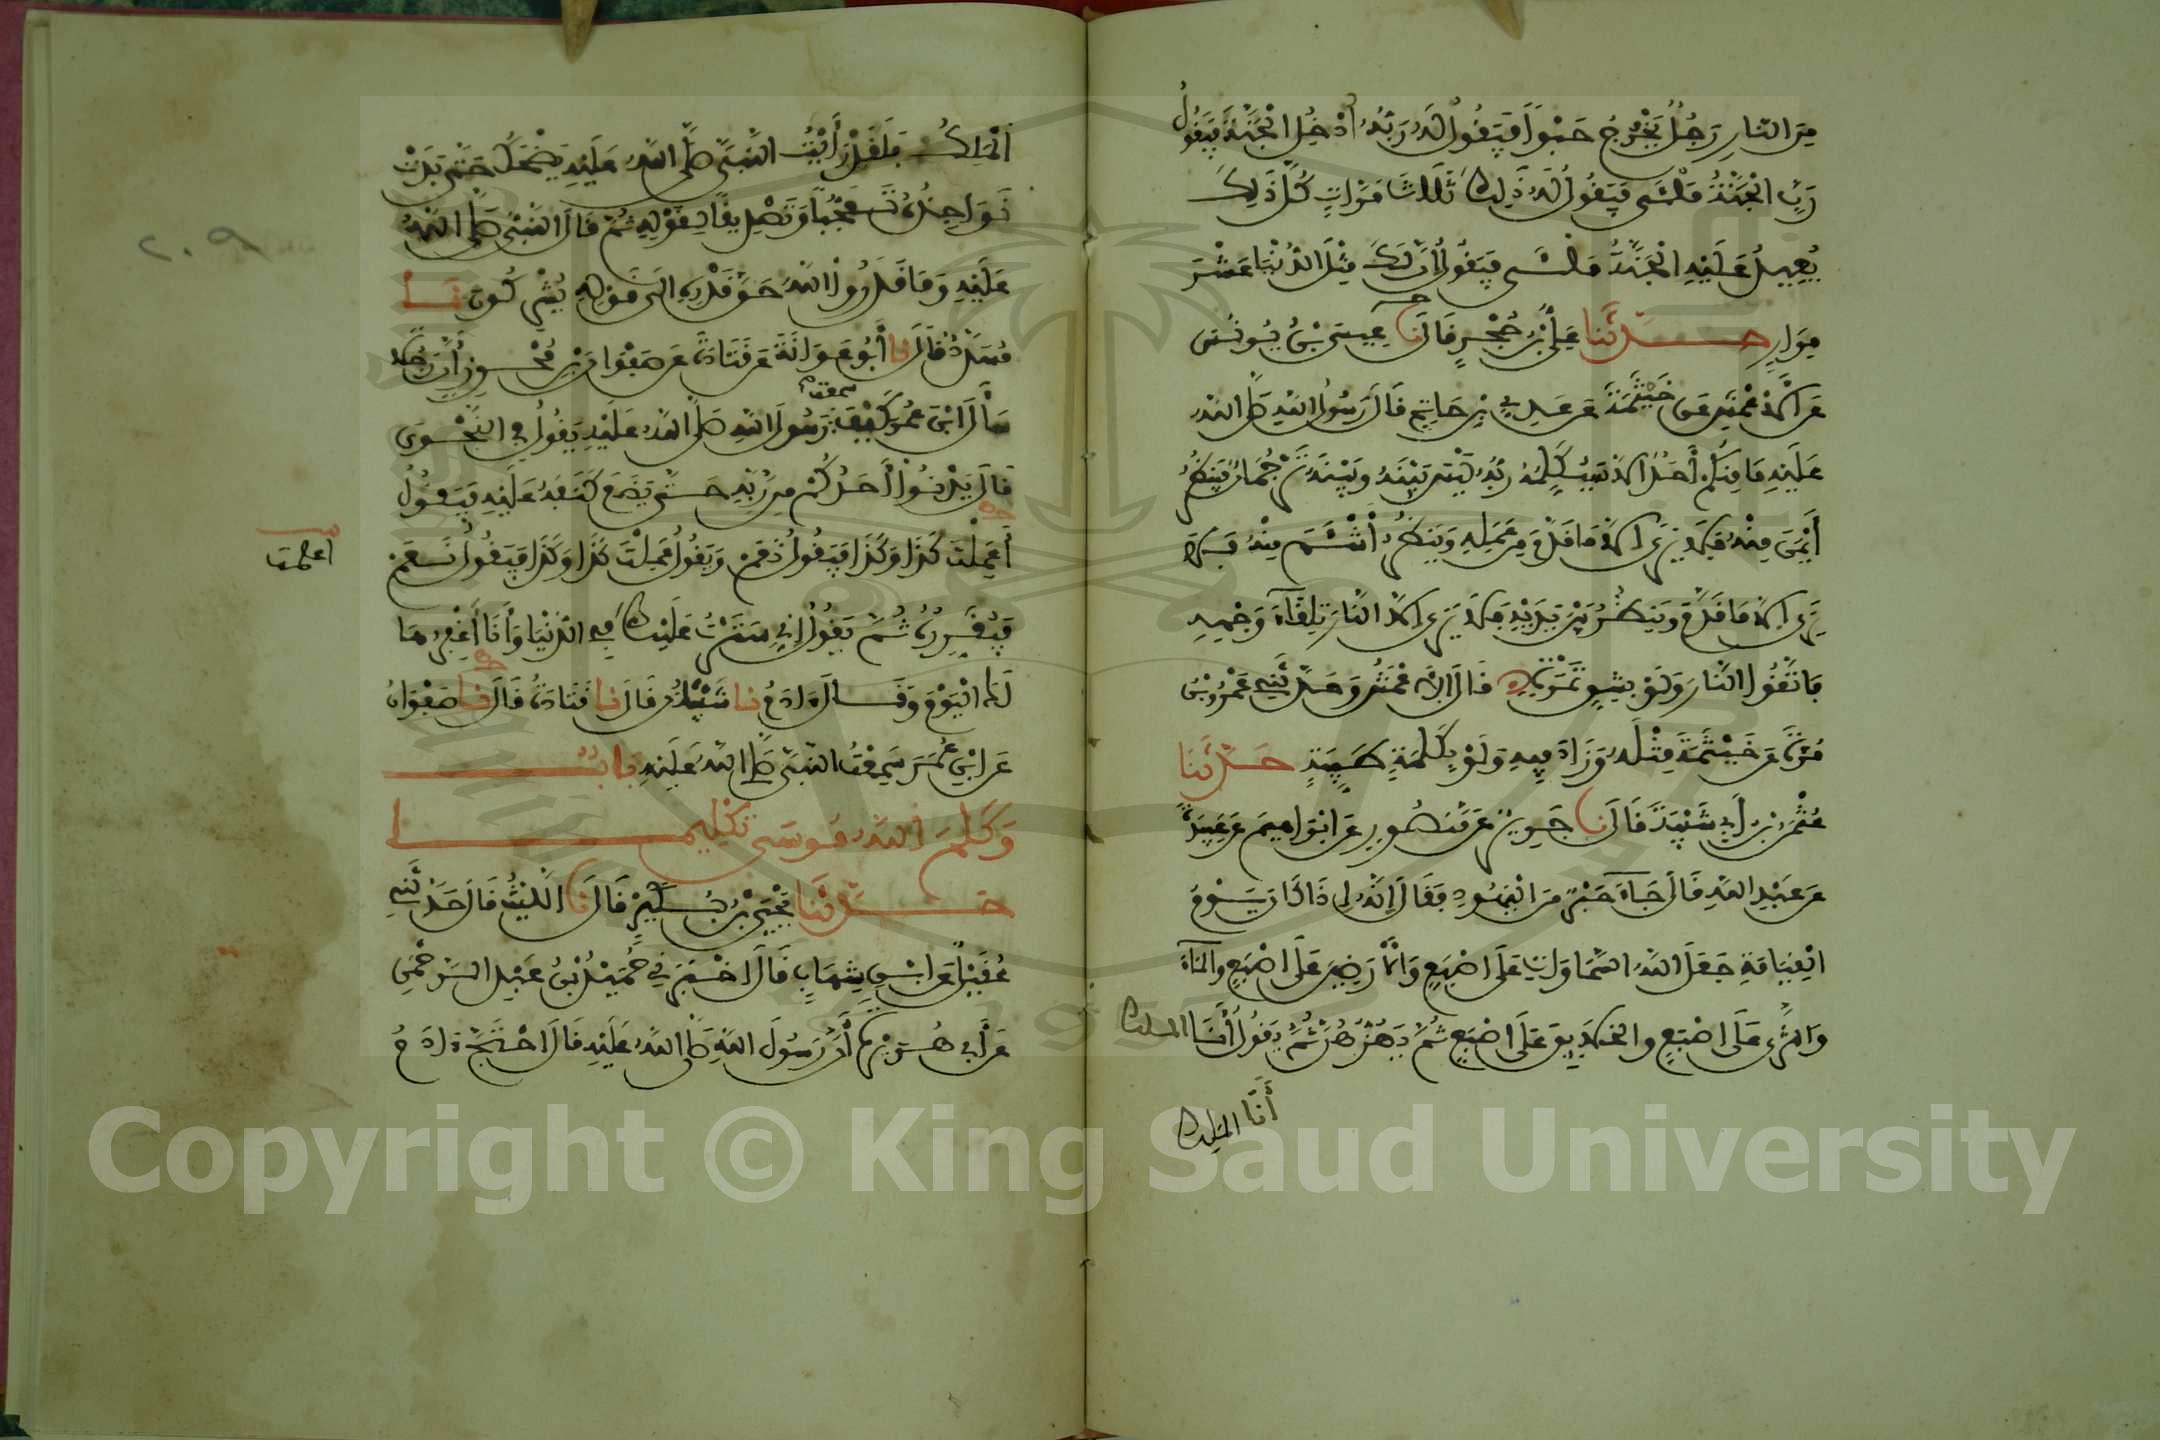 مِنَ النّارِ رَجُلٌ يَخْرُجُ حَبْوًا فَيَقُولُ لَهُ رَبُّهُ أُدْخُلِ الْجَنَّةَ فَيَقُولُ
رَبِّ الْجَنَّةُ مَلْئَى فَيَقُولُ لَهُ ذَلِكَ ثَلَاثَ مَرَّاتٍ كُلَّ ذَلِكَ
يُعِيدُ عَلَيْهِ الْجَنَّةُ مَلْئَى فَيَقُولُ إِنَّ لَكَ مِثْلَ الدُّنْيَا عَشْرَ
مِرَارٍ حَدَّثَنا عَلِيُّ بْنُ حُجْرٍ قَالَ نا عِيسَى بْنُ يُونُسَ
عَنِ الْأَعْمَشِ عَنْ خَيْثَمَةَ عَنْ عَدِيِّ بْنِ حَاتِمٍ قَالَ رَسُولُ اللهِ صَلَّى اللهُ
عَلَيْهِ مَا مِنْكُمْ أَحَدٌ إِلَّا سَيُكَلِّمُهُ رَبُّهُ لَيْسَ بَيْنَهُ وَبَيْنَهُ تَرْجُمَانٌ فَيَنْظُرُ
أَيْمَنَ مِنْهُ فَلَا يَرَى إِلَّا مَا قَدَّمَ مِنْ عَمَلِهِ وَيَنْظُرُ أَشْأَمَ مِنْهُ فَلَا
يَرَى إِلَّا مَا قَدَّمَ وَيَنْظُرُ بَيْنَ يَدَيْهِ فَلَا يَرَى إِلَّا النَّارَ تِلْقَاءَ وَجْهِهِ
فَاتَّقُوا النَّارَ وَلَوْ بِشِقِّ تَمْرَةٍ قَالَ الْأَعْمَشُ وَحَدَّثَنِي عَمْرُو بْنُ
مُرَّةَ عَنْ خَيْثَمَةَ مِثْلَهُ وَزَادَ فِيهِ وَلَوْ بِكَلِمَةٍ طَيِّبَةٍ حَدَّثَنا
عُثْمَنُ بْنُ أَبِي شَيْبَةَ قَالَ نا جَرِيرٌ عَنْ مَنْصُورٍ عَنْ إِبْرَاهِيمَ عَنْ عَبِيدَةَ
عَنْ عَبْدِ اللهِ قَالَ جَاءَ حَبْرٌ مِنَ الْيَهُودِ فَقَالَ إِنَّهُ إِذَا كَانَ يَوْمُ
الْقِيَامَةِ جَعَلَ اللهُ السَّمَاوَاتِ عَلَى اصْبَعٍ وَالْأَرَضِينَ عَلَى اصْبَعٍ وَالْمَاءَ
وَالثَّرَى عَلَى اصْبَعٍ وَالْخَلَائِقَ عَلَى اصْبَعٍ ثُمَّ يَهُزُّهُنَّ ثُمَّ يَقُولُ أَنَا الملك
أَنَا المَلِكُ
الْمَلِكُ فَلَقَدْ رَأَيْتُ النَّبِيَّ صَلَّى اللهُ عَلَيْهِ يَضْحَكُ حَتَّى بَدَتْ
نَوَاجِذُهُ تَعَجُّبًا وَتَصْدِيقًا لِقَوْلِهِ ثُمَّ قَالَ النَّبِيُّ صَلَّى اللهُ
عَلَيْهِ وَمَا قَدَرُوا اللهَ حَقَّ قَدْرِهِ الَى قوْلِهِ يُشْرِكُونَ نا
مُسَدَّدٌ قَالَ نا أَبُو عَوَانَةَ عَنْ قَتَادَةَ عَنْ صَفْوَانَ بْنِ مُحْرِزٍ أَنَّ رَجُلًا
سَأَلَ ابْنَ عُمَرَ كَيْفَ سمعت رَسُولَ اللهِ صَلَّى اللهُ عَلَيْهِ يَقُولُ فِي النَّجْوَى
قَالَ يَدْنُوا أَحَدُكُمْ مِنْ رَبِّهِ حَتَّى يَضَعَ كَنَفَهُ عَلَيْهِ فَيَقُولُ
أَعَمِلْتَ كَذَا وَكَذَا فَيَقُولُ نَعَمْ وَيَقُولُ عَمِلْتَ كَذَا وَكَذَا فَيَقُولُ نَعَمْ
اعملت
فَيُقَرِّرُهُ ثُمَّ يَقُولُ إِنِّي سَتَرْتُ عَلَيْكَ فِي الدُّنْيَا وَأَنَا أَغْفِرُهَا
لَكَ الْيَوْمَ وَقَالَ ءَادَمُ نا شَيْبَانُ قَالَ نا قَتَادَةُ قَالَ نا صَفْوَانُ
عَنِ ابْنِ عُمَرَ سَمِعْتُ النَّبِيَّ صَلَّى اللهُ عَلَيْهِ بَابُ
وَكَلَّمَ اللهُ مُوسَى تَكْلِيمًا
حَدَّثَنَا يَحْيَى بْنُ بُكَيْرٍ قَالَ نا اللَّيْثُ قَالَ حَدَّثَنِي
عُقَيْلٌ عَنِ ابْنِ شِهَابٍ قَالَ اخْبَرَنِي حُمَيْدُ بْنُ عَبْدِ الرَّحْمَنِ
عَنْ أَبِي هُرَيْرَةَ أَنَّ رَسُولَ اللهِ صَلَّى اللهُ عَلَيْهِ قَالَ احْتَجَّ ءَادَمُ
٢٠٩
Copyright © King Saud University